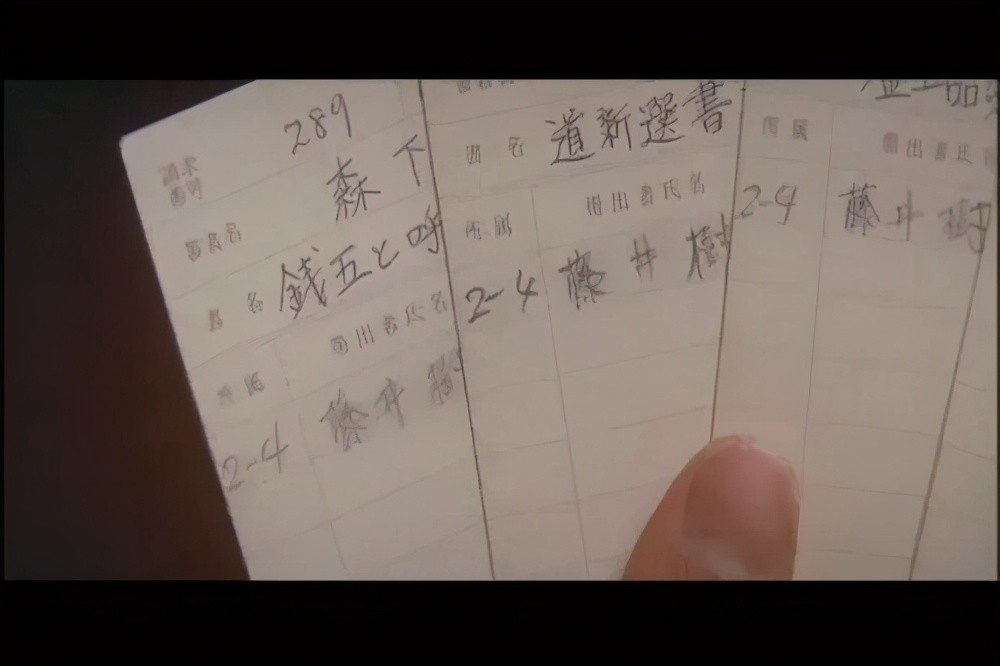 289
森下
書名 銭五と呼
貸出者氏名
2-4 藤井樹
書名 道新選書
所属 貸出者氏名
2-4 藤井樹
所属 貸出者氏名
2-4 藤井樹